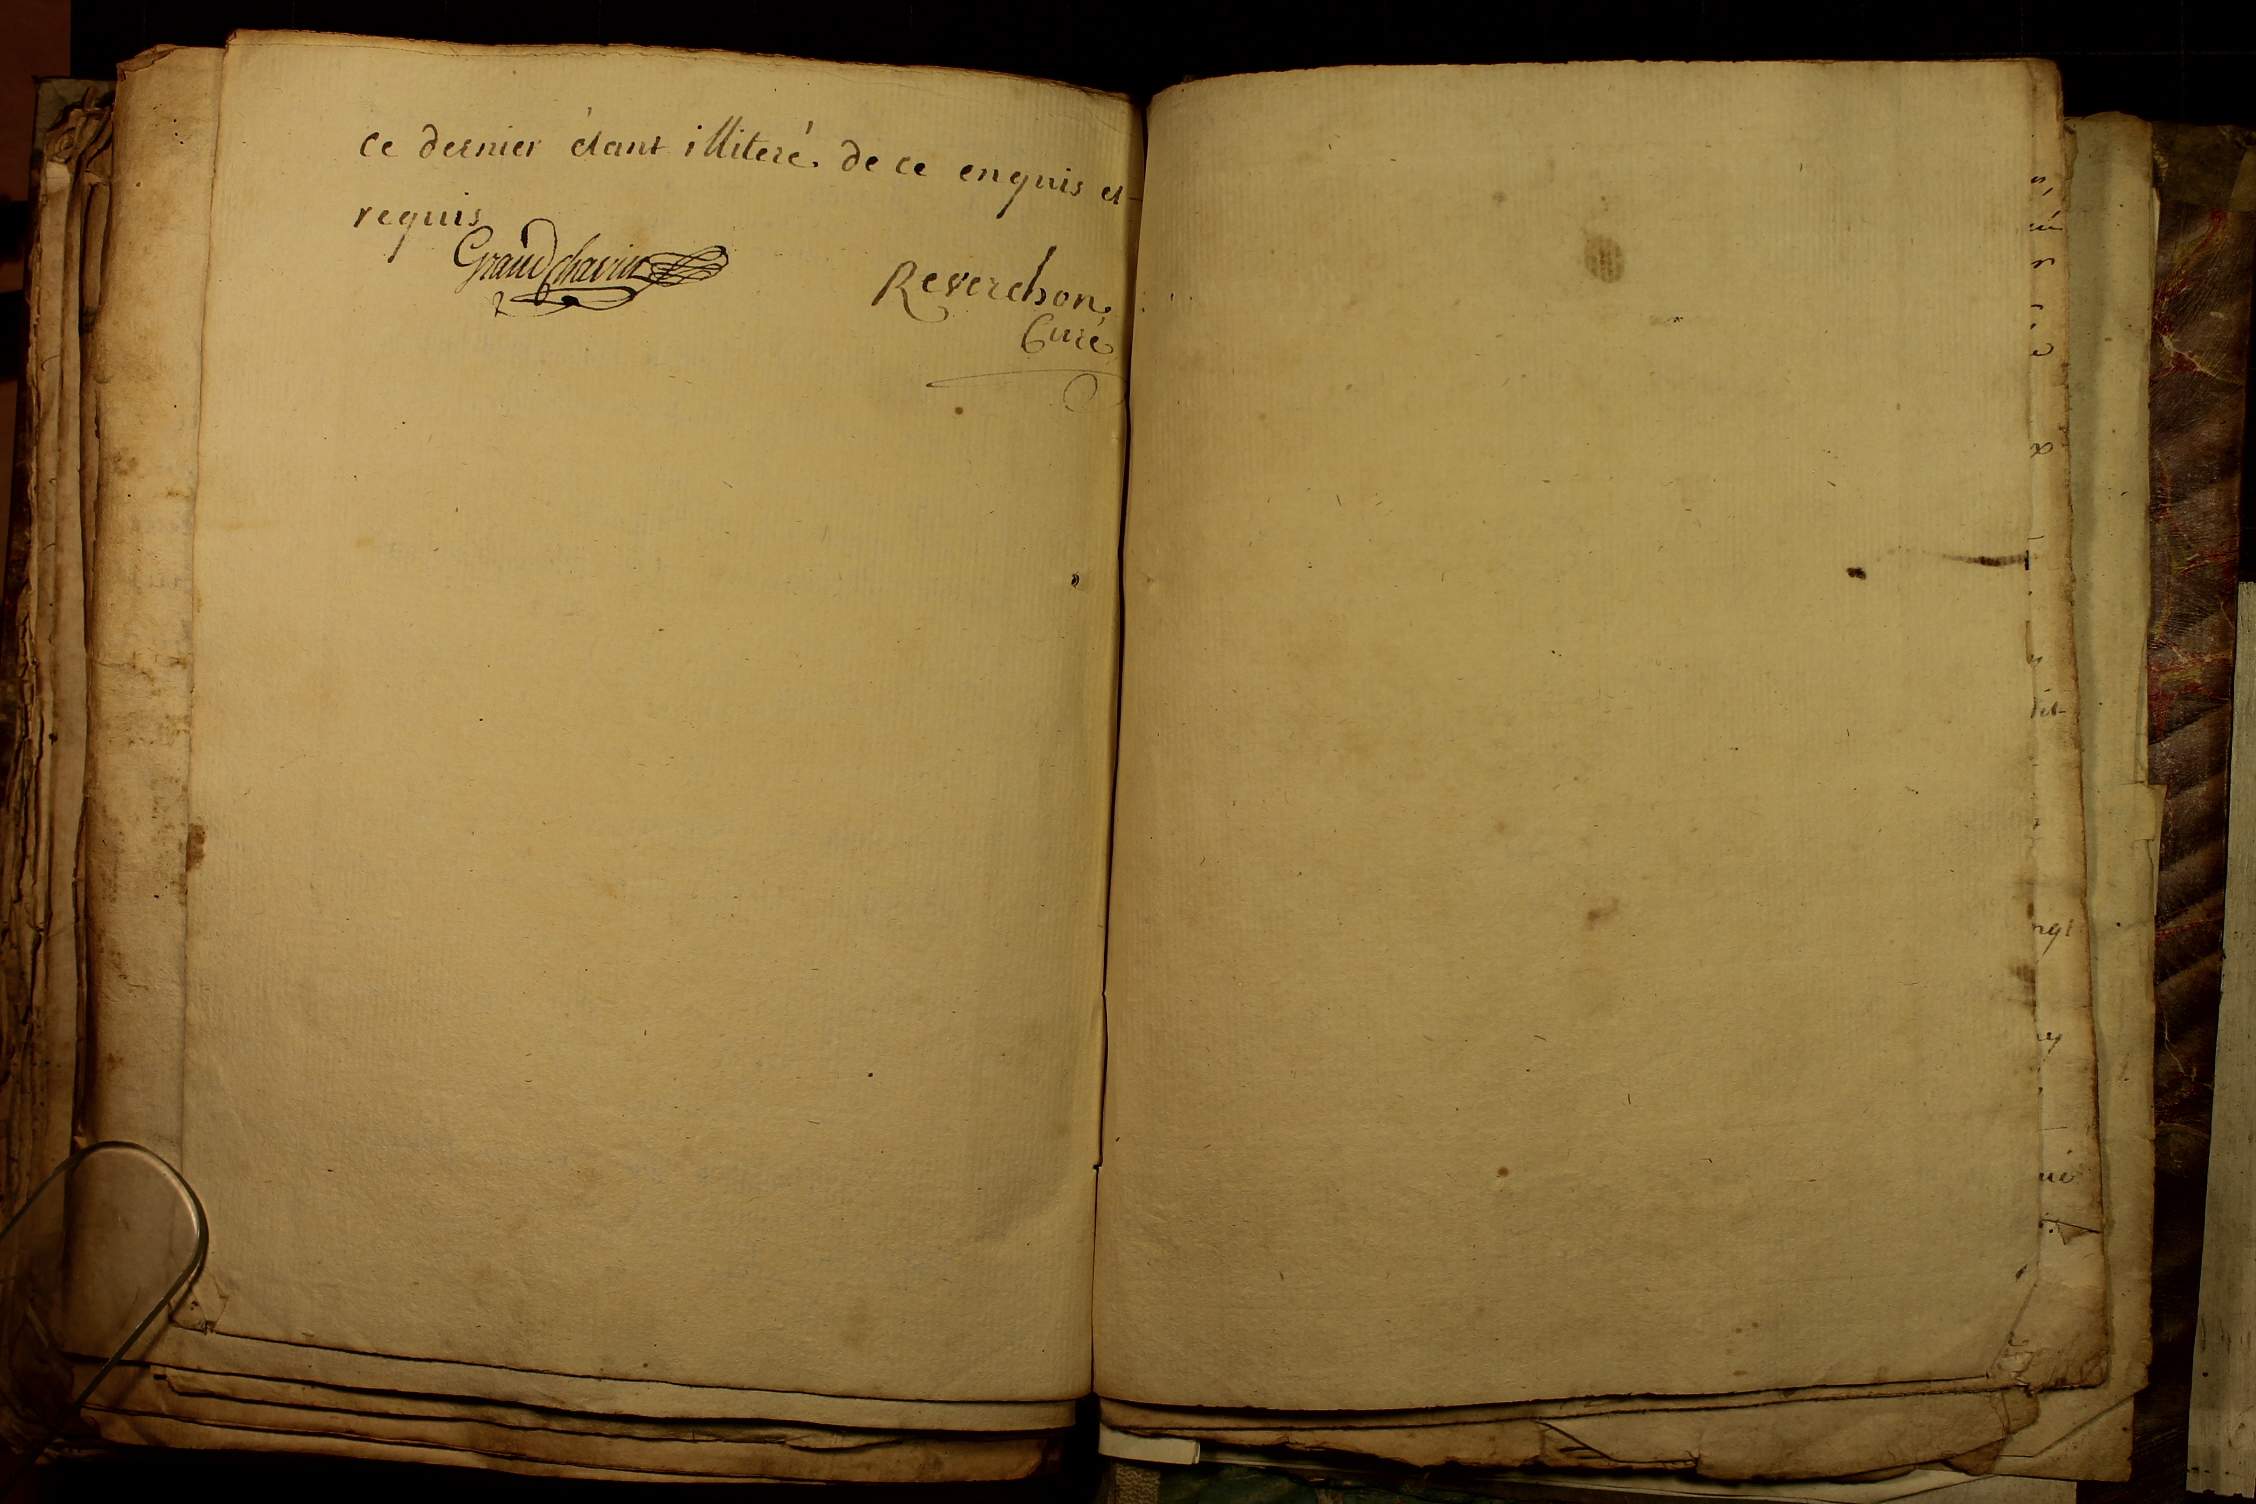 ce dernier étant illiteré de ce enquis et
requis
Grandchavin
Reverchon
Curé